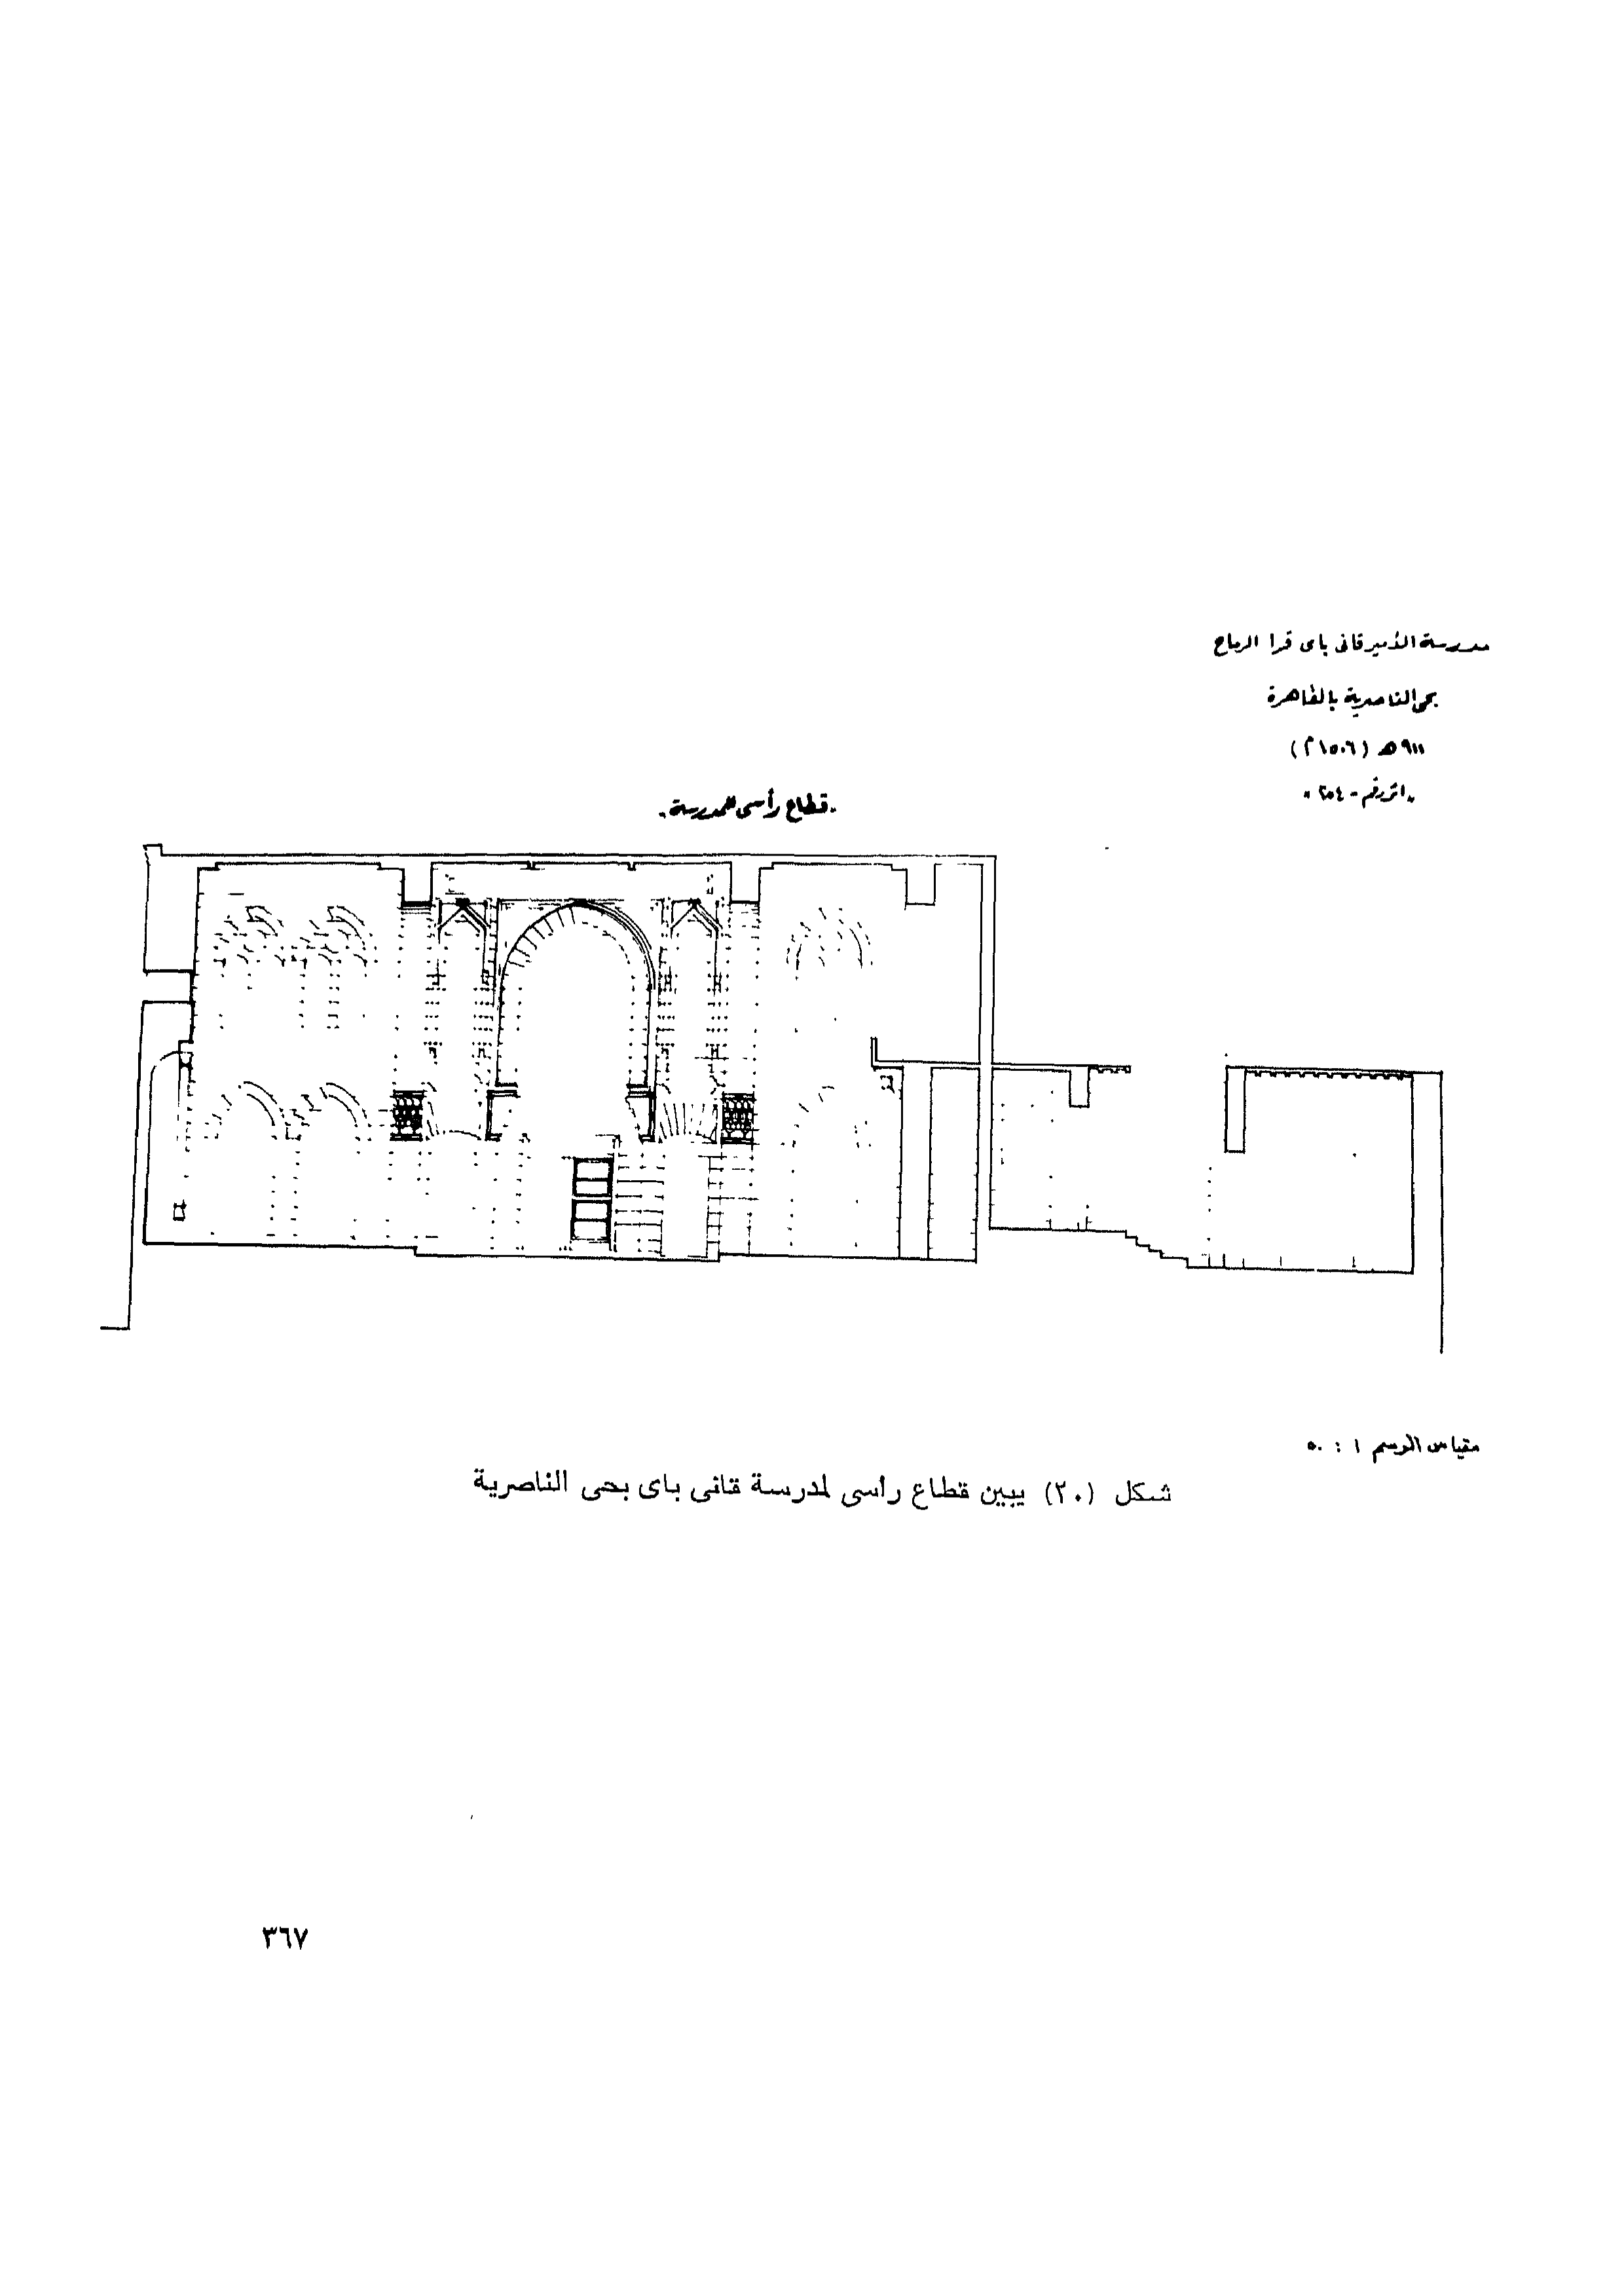 مدرسة الأمير قانى باى قرا الرماح
بحى الناصرية بالقاهرة
٩١١ هـ (١٥٠٦ م)
"اثر رقم - ٢٥٤"
. قطاع رأسى للمدرسة .
مقياس الرسم ١ : ٥٠
شكل (٢٠) يبين قطاع رأسى لمدرسة قانى باى بحى الناصرية
٣٦٧